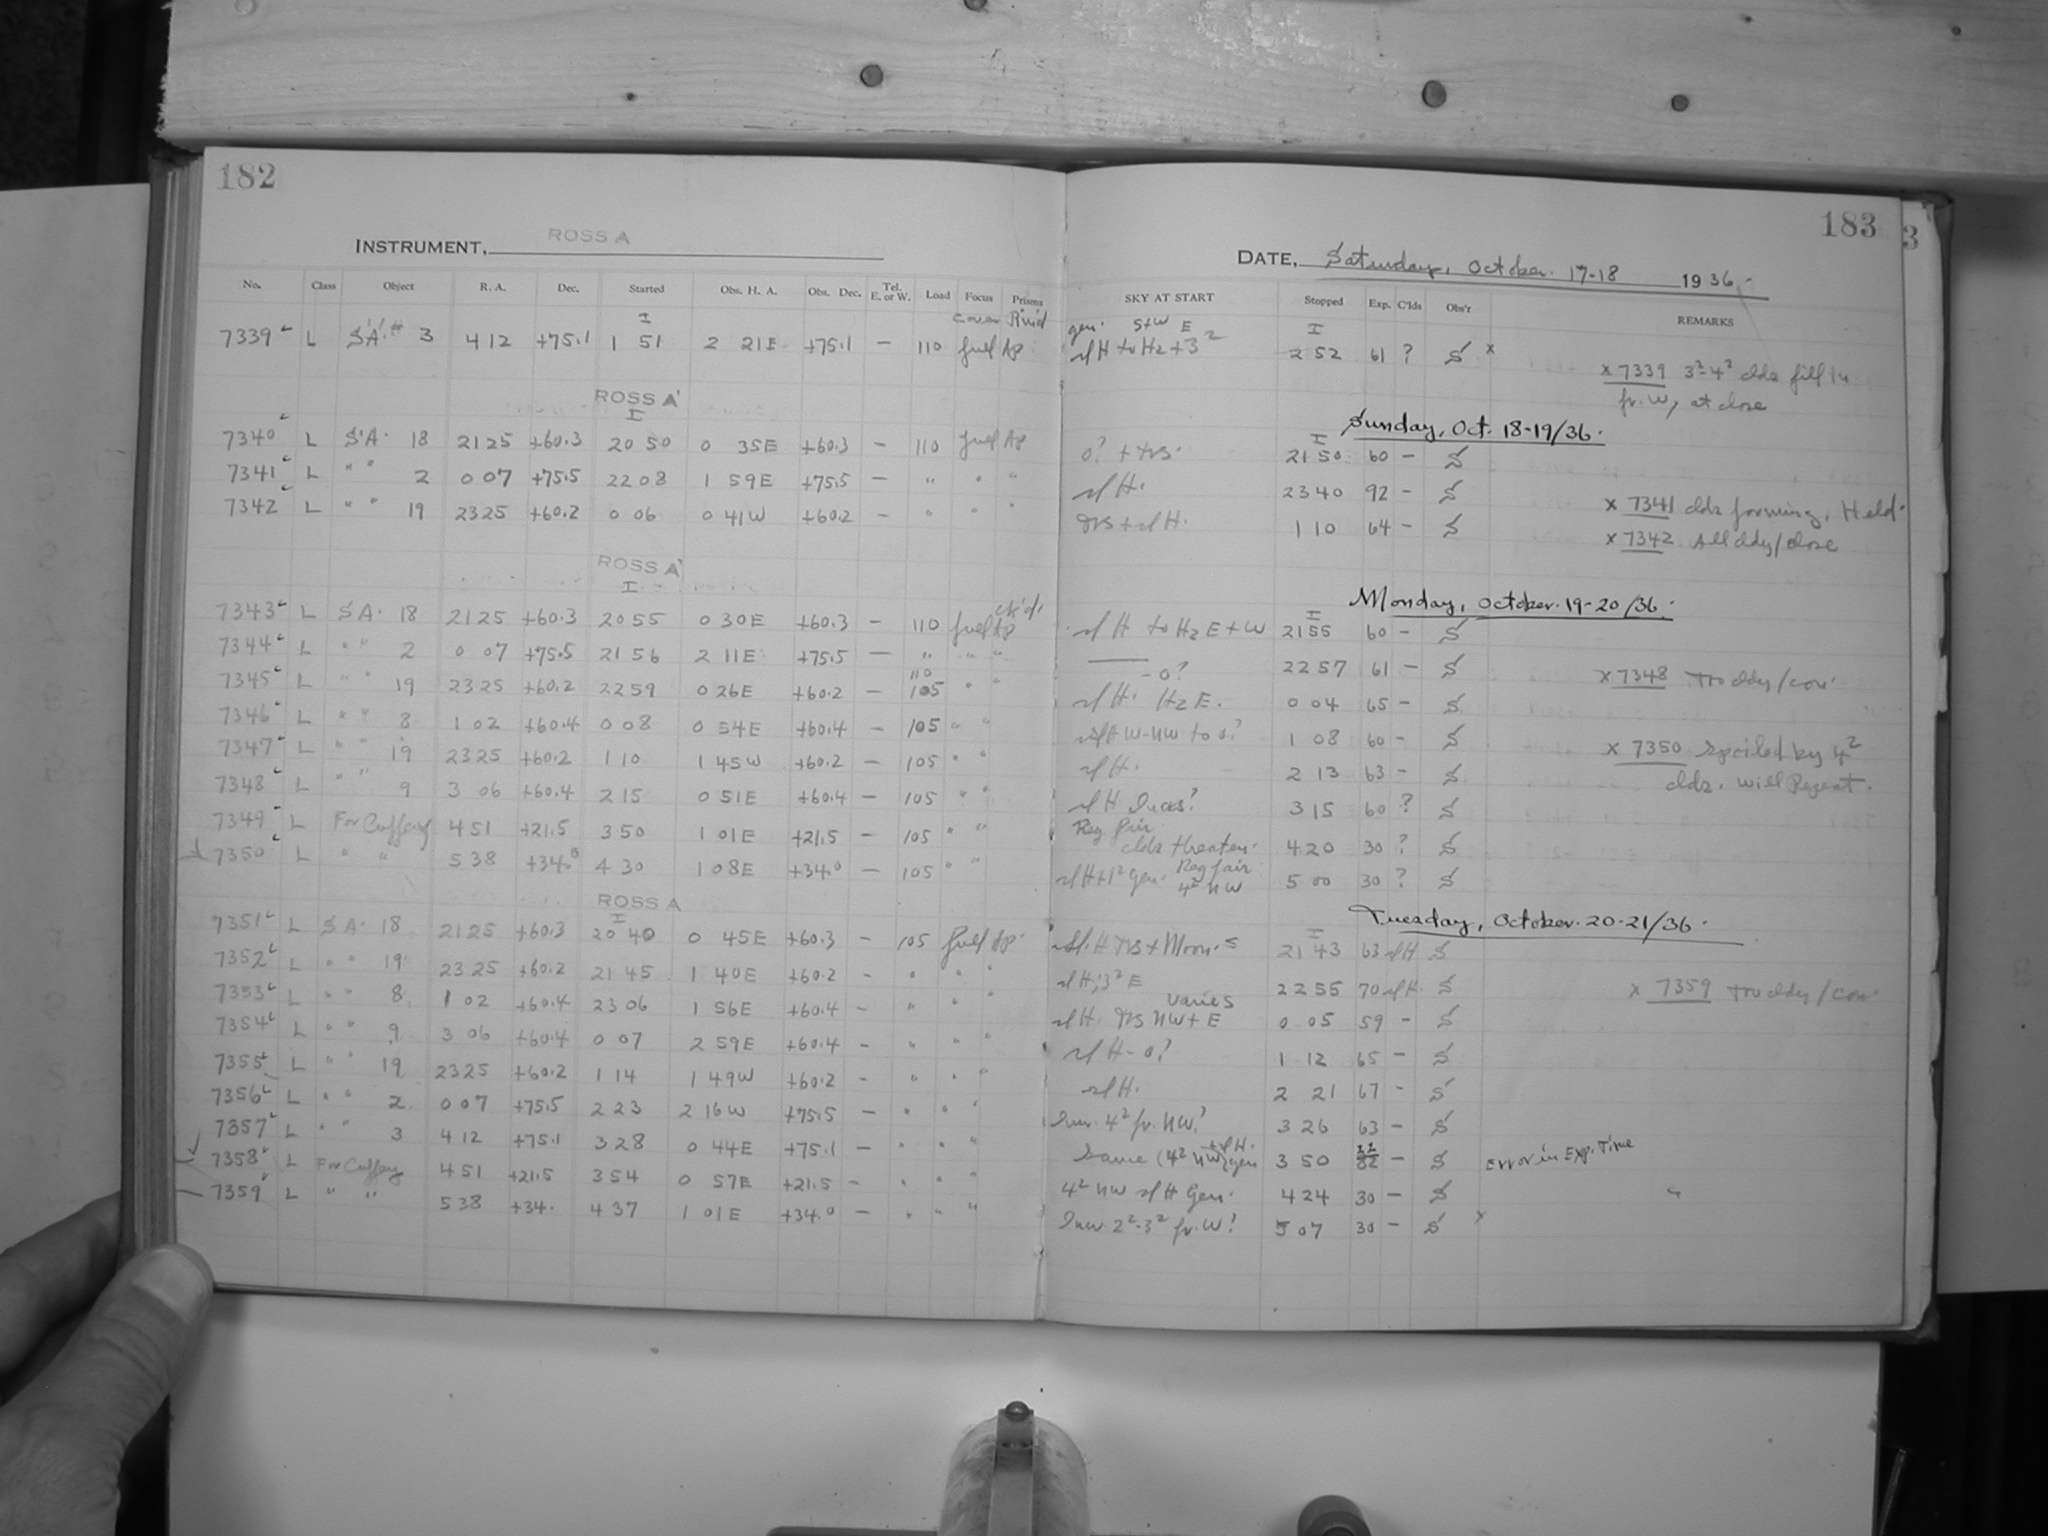 182
183
3
INSTRUMENT, ROSS A
DATE, Saturday, October. 17-18 1936.
No. Class Object R. A. Dec. Started Obs. H. A. Obs. Dec. Tel. E. or W. Load Focus Prisms SKY AT START Stopped Exp. C'lds Obs'r REMARKS
7339 L S.A. # 3 4 12 +75.1 1 51 2 21E +75.1 — 110 full Ap. gen. S+W E sl H to H2 + 3² 2 52 61 ? S x
x 7339 3²-4² clds fill in
fr. W, at close
ROSS A
Sunday, Oct. 18-19/36.
7340 L S.A. 18 21 25 +60.3 20 50 0 35E +60.3 — 110 full Ap 0? + trs. 21 50 60 — S
7341 L " " 2 0 07 +75.5 22 08 1 59E +75.5 — " " " sl H. 23 40 92 — S
x 7341 clds forming. Held.
7342 L " " 19 23 25 +60.2 0 06 0 41W +60.2 — " " " trs + sl H. 1 10 64 — S
x 7342 All cldy/close
ROSS A
Monday, October. 19-20/36.
7343 L S.A. 18 21 25 +60.3 20 55 0 30E +60.3 — 110 full Ap sl H to H2 E + W 21 55 60 — S
7344 L " " 2 0 07 +75.5 21 56 2 11E +75.5 — " " " — 0? 22 57 61 — S
x 7348
7345 L " " 19 23 25 +60.2 22 59 0 26E +60.2 — 110 105 " " sl H. H2 E. 0 04 65 — S
7346 L " " 8 1 02 +60.4 0 08 0 54E +60.4 — 105 " " sl H W-NW to 0? 1 08 60 — S
x 7350 spoiled by 4²
7347 L " " 19 23 25 +60.2 1 10 1 45W +60.2 — 105 " " sl H. 2 13 63 — S
clds. will Repeat.
7348 L " " 9 3 06 +60.4 2 15 0 51E +60.4 — 105 " " sl H Incs? 3 15 60 ? S
7349 L For Cuffey 4 51 +21.5 3 50 1 01E +21.5 — 105 " " Reg. fair clds threaten. 4 20 30 ? S
7350 L " " 5 38 +34.0 4 30 1 08E +34.0 — 105 " " sl H + 1² gen. Reg fair 4² NW 5 00 30 ? S
ROSS A
Tuesday, October. 20-21/36.
7351 L S.A. 18 21 25 +60.3 20 40 0 45E +60.3 — 105 full Ap. sl. H trs + Moon. S 21 43 63 sl H S
7352 L " " 19 23 25 +60.2 21 45 1 40E +60.2 — " " " sl H; 3² E 22 55 70 sl H. S
x 7359
7353 L " " 8 1 02 +60.4 23 06 1 56E +60.4 — " " " sl H. trs NW + E varies 0 05 59 — S
7354 L " " 9 3 06 +60.4 0 07 2 59E +60.4 — " " " sl H - 0? 1 12 65 — S
7355 L " " 19 23 25 +60.2 1 14 1 49W +60.2 — " " " sl H. 2 21 67 — S
7356 L " " 2 0 07 +75.5 2 23 2 16W +75.5 — " " " 4² fr. NW? 3 26 63 — S
7357 L " " 3 4 12 +75.1 3 28 0 44E +75.1 — " " " Same (4² NW) + sl H. gen 3 50 22 82 — S Error in Exp. Time
7358 L For Cuffey 4 51 +21.5 3 54 0 57E +21.5 — " " " 4² NW sl H Gen. 4 24 30 — S
7359 L " " 5 38 +34. 4 37 1 01E +34.0 — " " " 2²-3² fr. W? 5 07 30 — S x